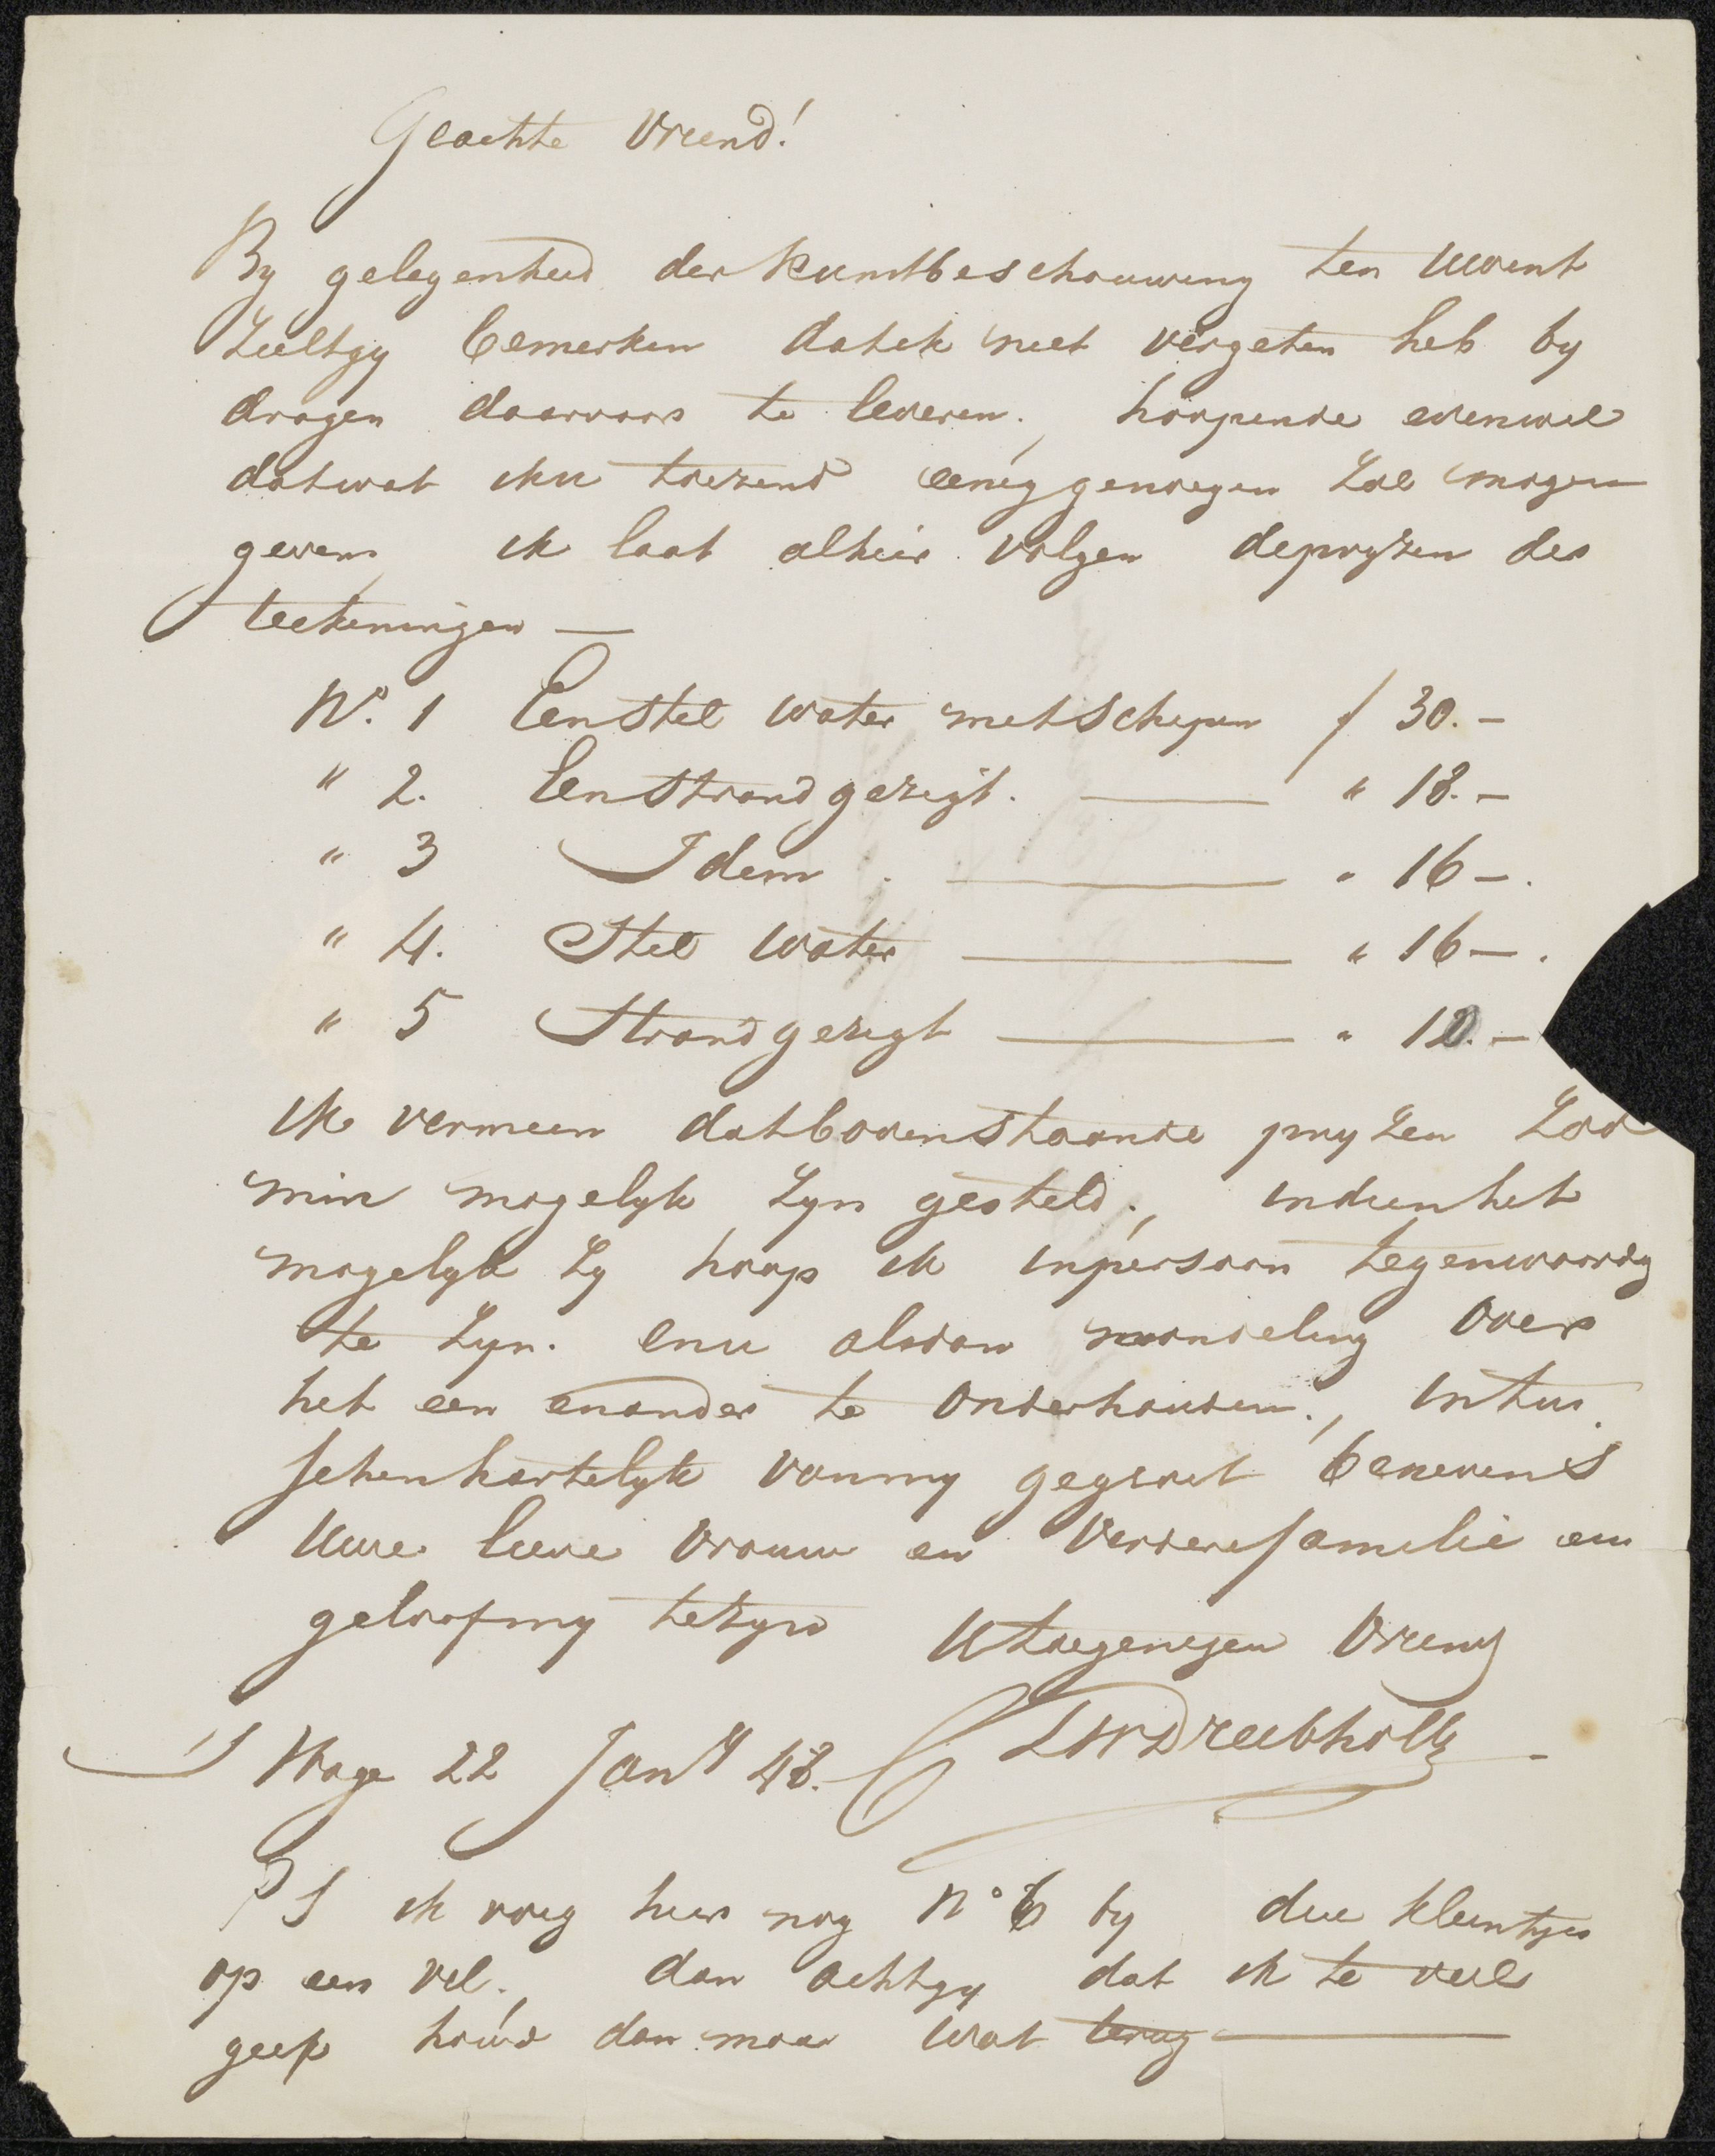 Geachte Vriend!
By gelegenheid der Kunstbeschouwing ten Uwent
Zultgy bemerken dat ik niet vergeten heb by
dragen daarvoor te leveren., hoopende evenwel
dat wat ik u toezend eenig genoegen zal mogen
geven, ik laat alhier volgen de pryzen der
teekeningen —
No. 1 Een Stil water met Schepen f 30.-
" 2. Een Strand gezigt. — " 18.-
" 3 Idem. — " 16-.
" 4. Stil water — " 16-.
" 5 Strand gezigt — " 12.-
ik vermeen dat bovenstaande pryzen zoo
min mogelyk zyn gesteld., indien het
mogelyk zy hoop ik in persoon tegenwoordig
te zyn. en u alsdan mondeling over
het een en ander te onderhouden., intus
schen hartelyk van my gegroet benevens
Uwe lieve vrouw en verdere familie en
geloof my te zyn U toegenegen Vriend
S Hage 22 Jany 48. L W Dreibholtz
PS ik voeg hier nog No 6 by drie kleintjes
op een vel., dan acht gy dat ik te veel
geef houd dan maar wat terug —